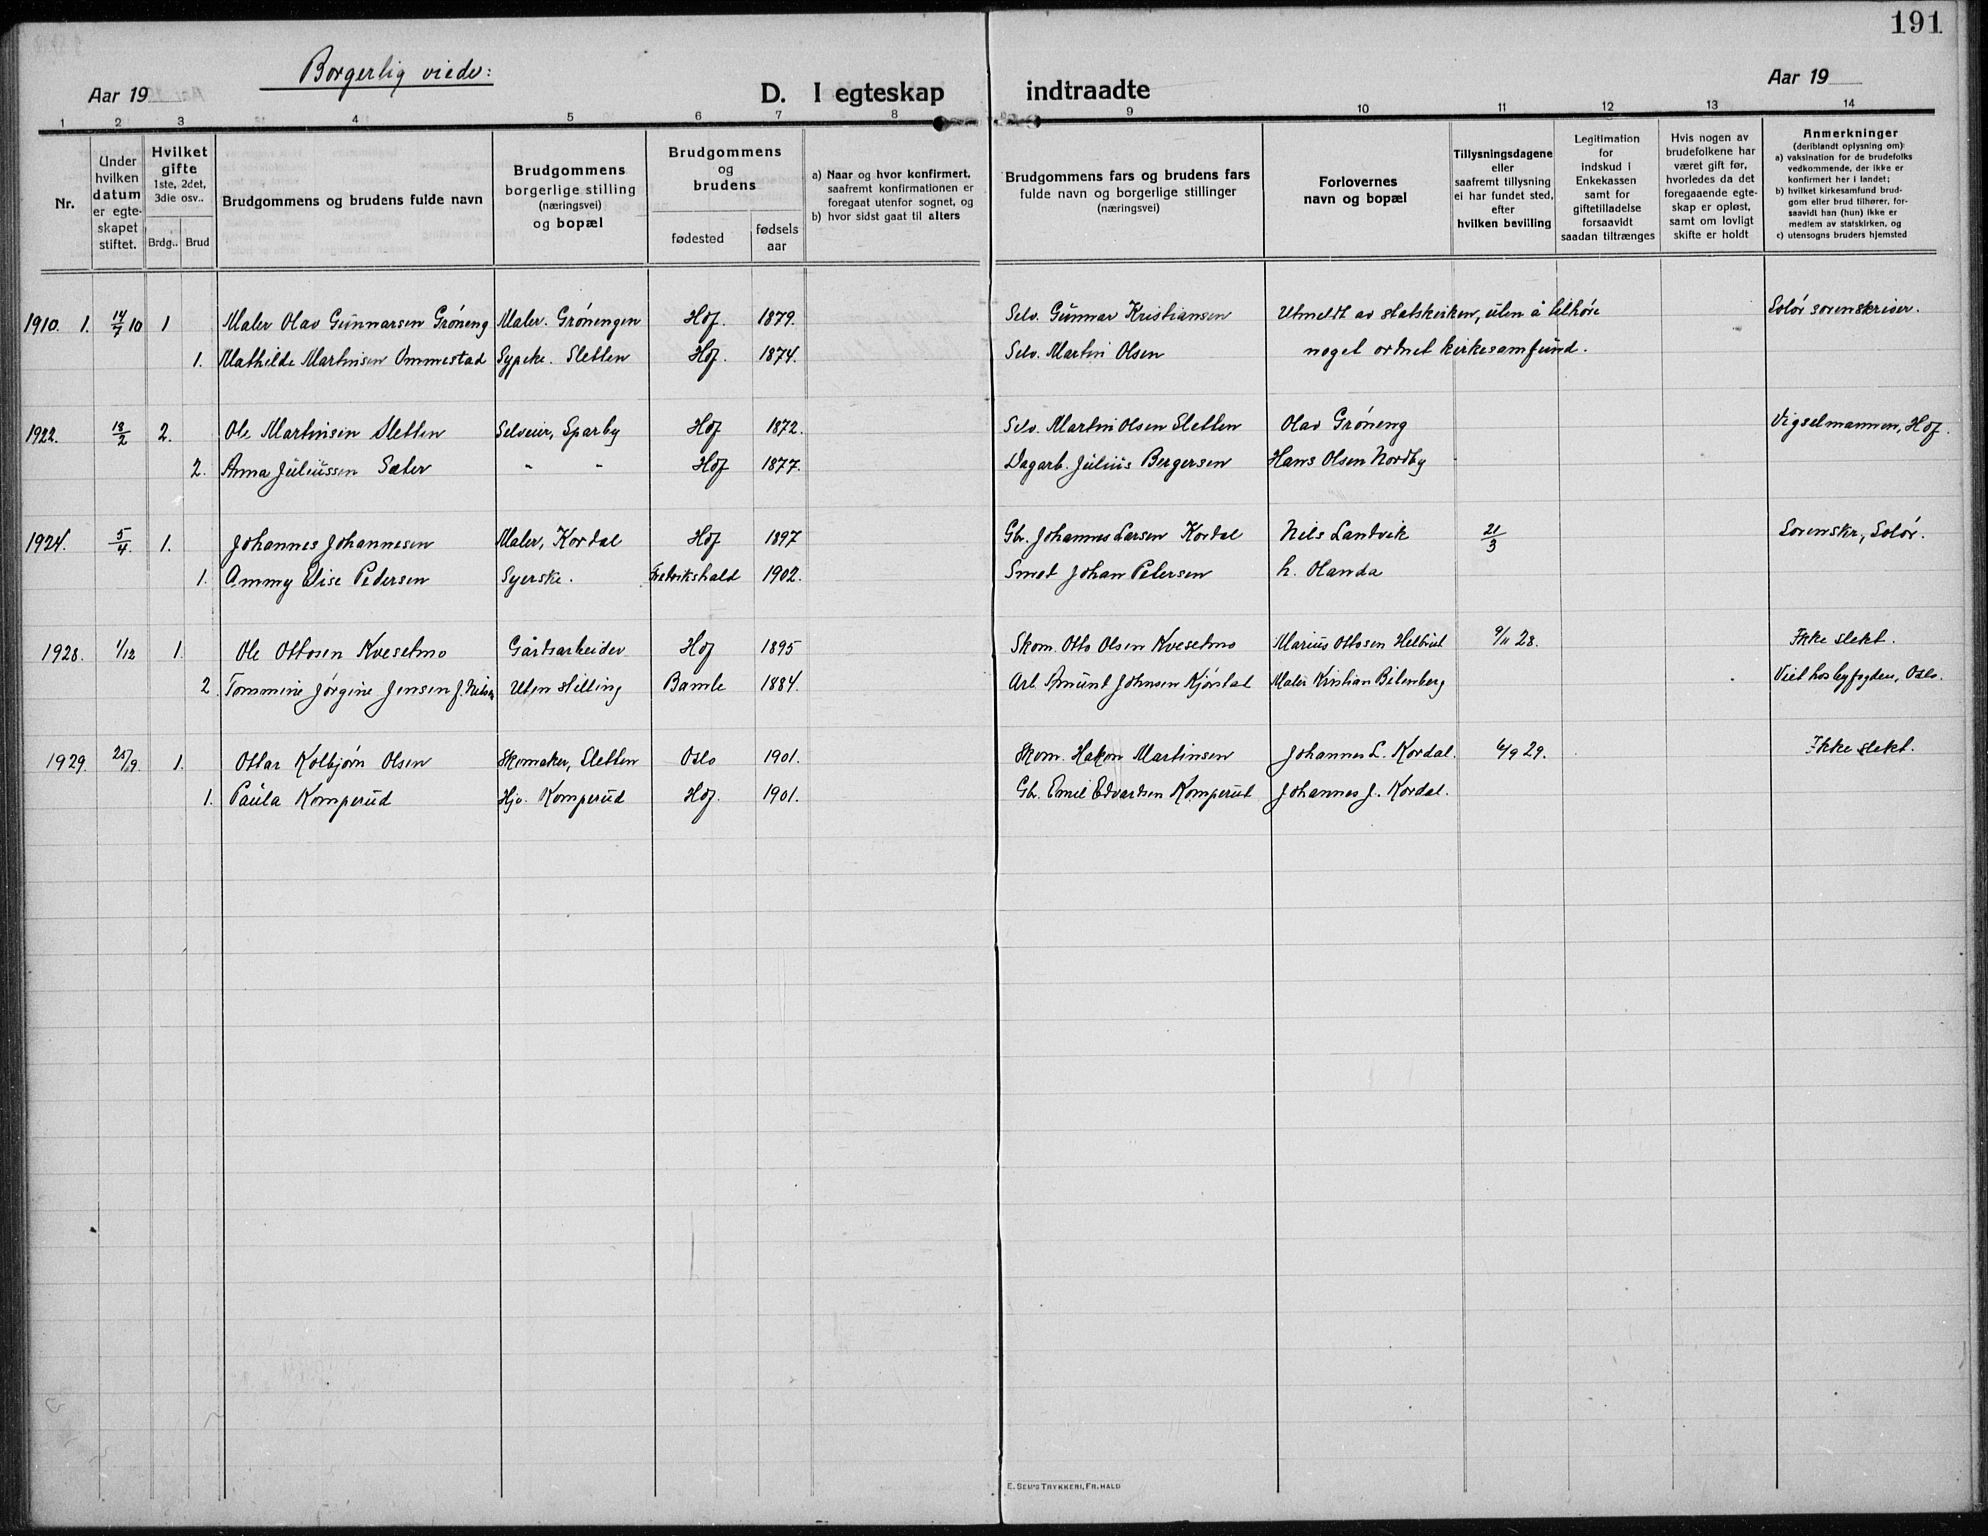 191
Borgerlig viede:
Aar 19
D. I egteskap indtraadte
Aar 19
1 2 3 4 5 6 7 8 9 10 11 12 13 14
Nr.
Under hvilken datum er egte-skapet stiftet.
Hvilket gifte 1ste, 2det, 3die osv..
Brdg.. Brud
Brudgommens og brudens fulde navn
Brudgommens borgerlige stilling (næringsvei) og bopæl
Brudgommens og brudens
fødested
fødsels aar
a) Naar og hvor konfirmert, saafremt konfirmationen er foregaat utenfor sognet, og
b) hvor sidst gaat til alters
Brudgommens fars og brudens fars fulde navn og borgerlige stillinger (næringsvei)
Forlovernes navn og bopæl
Tillysningsdagene eller saafremt tillysning ei har fundet sted, efter hvilken bevilling
Legitimation for indskud i Enkekassen samt for giftetilladelse forsaavidt saadan tiltrænges
Hvis nogen av brudefolkene har været gift før, hvorledes da det foregaaende egte-skap er opløst, samt om lovligt skifte er holdt
Anmerkninger (deriblandt oplysning om):
a) vaksination for de brudefolks vedkommende, der ikke er konfirmert her i landet;
b) hvilket kirkesamfund brud-gom eller brud tilhører, for-saavidt han (hun) ikke er medlem av statskirken, og
c) utensogns bruders hjemsted
1910. 1. 14/7 10 1 Maler Olav Gunnarsen Grøneng Maler. Grøningen Hof. 1879. Selv. Gunnar Kristiansen Utmeldt av statskirken, uten å tilhøre Solør sorenskriver.
1. Mathilde Martinsen Ommestad Sypike. Sletten Hof. 1874. Selv. Martin Olsen noget ordnet kirkesamfund.
1922. 18/2 2. Ole Martinsen Sletten Selveier, Sparby Hof 1872. Selv. Martin Olsen Sletten Olav Grøneng Vigselmannen, Hof.
2. Anna Juliussen Sæter " " Hof 1877. Dagarb. Julius Bergersen Hans Olsen Nordby
1924. 5/4. 1. Johannes Johannesen Maler, Kordal Hof 1897 Gbr. Johannes Larsen Kordal Nils Landvik 21/3 Sorenskr., Solør.
1. Ammy Elise Pedersen Syerske. Fredrikshald 1902. Smed Johan Petersen h. Olanda
1928. 1/12 1. Ole Ottosen Kvesetmo Gårdsarbeider Hof 1895 Skom. Otto Olsen Kvesetmo Marius Ottosen 9/11 28. Ikke slekt.
2. Tommine Jørgine Jensen f. Nilsen Uten stilling Bamle 1884. Arb. Amund Johnsen Kjørstad Maler Kristian Bilenberg Viet hos byfogden, Oslo.
1929. /9. 1. Ottar Kolbjørn Olsen Skomaker, Sletten Oslo 1901. Skom. Hakon Martinsen Johannes L. Kordal. 6/9 29. Ikke slekt.
1. Paula Komperud Hjv. Komperud Hof. 1901. Gbr. Emil Edvardsen Komperud Johannes J. Kordal.
E. SEM'S TRYKKERI, FR.HALD